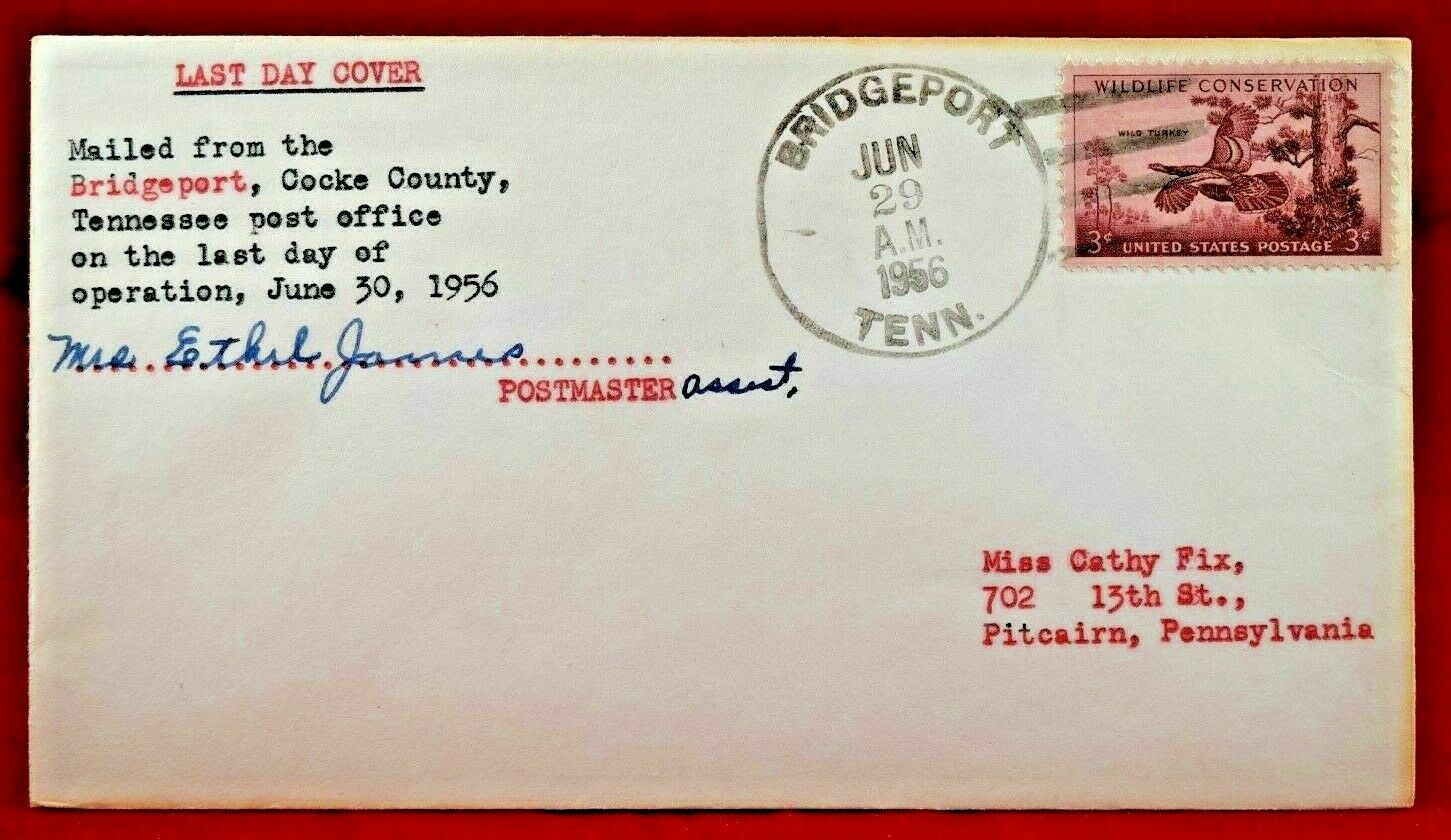 LAST DAY COVER
Mailed from the
Bridgeport, Cocke County,
Tennessee post office
on the last day of
operation, June 30, 1956
Mrs. Ethel James
POSTMASTER assist.
BRIDGEPORT
JUN
29
A.M.
1956
TENN.
WILDLIFE CONSERVATION
WILD TURKEY
3¢ UNITED STATES POSTAGE 3¢
Miss Cathy Fix,
702 13th St.,
Pitcairn, Pennsylvania